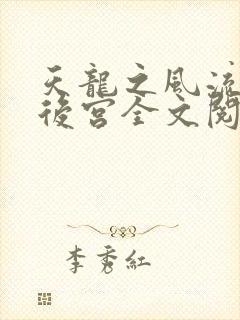 天龍之風流
後宮全文閱
李秀紅